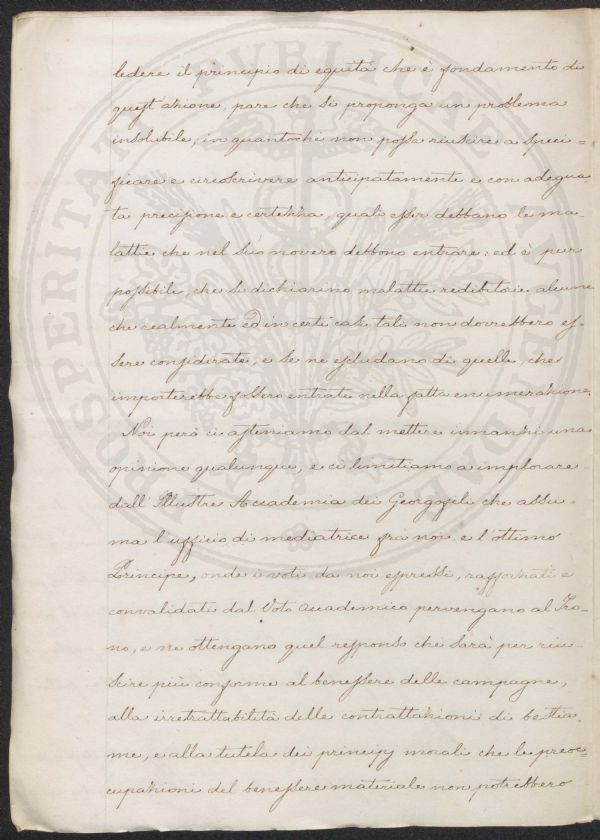 ledere il principio di equità che è fondamento di
quest'azione, pare che si proponga un problema
insolubile, in quantochè non possa riuscire a speci=
ficare e circoscrivere anticipatamente e con adegua
ta precisione e certezza, quali esser debbano le ma=
lattie che nel suo novero debbono entrare: ed è pur
possibile, che si dichiarino malattie redibitorie alcune
che realmente ed in certi casi tali non dovrebbero es=
sere considerate, e se ne escludano di quelle, che
importerebbe fossero entrate nella fatta enumerazione.
Noi però ci asteniamo dal mettere innanzi una
opinione qualunque, e ci limitiamo a implorare
dall'Illustre Accademia dei Georgofili che assu=
ma l'ufficio di mediatrice fra noi e l'ottimo
Principe, onde i voti da noi espressi, rafforzati e
convalidati dal Voto accademico pervengano al Tro=
no, e ne ottengano quel responso che sarà per riu=
scire più conforme al benessere delle campagne,
alla irretrattabilità delle contrattazioni di bestia=
me, e alla tutela dei principj morali che le preoc=
cupazioni del benessere materiale non potrebbero
PROSPERITATI PVBLICAE AVGENDAE